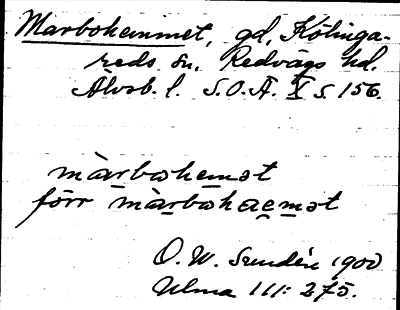 Marbohemmet, gd, Kölinga-
reds sn, Redvägs hd.
Älvsb. l. S.O.Ä. X s. 156.
màrbωhemət
förr màrbωhaemət
O. W. Sundén 1900
Ulma 111: 275.